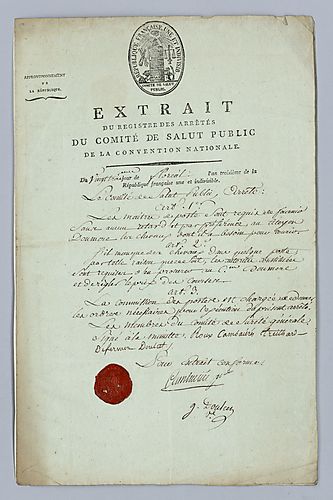 RÉPUBLIQUE FRANÇAISE, UNE ET INDIVISIBLE
COMITÉ DE SALUT
PUBLIC.
APPROVISIONNEMENT
DE
LA RÉPUBLIQUE.
EXTRAIT
DU REGISTRE DES ARRÊTÉS
DU COMITÉ DE SALUT PUBLIC
DE LA CONVENTION NATIONALE.
Du jour de floréal l'an troisième de la
République française une et indivisible.
Le Comité de Salut Public, arrête:
art. 1er
Les maîtres de poste sont requis de fournir
sans aucun retard et par préférence au citoyen
les chevaux dont il a besoin pour
art. 2
S'il manque de chevaux dans quelque poste
par telle raison que ce soit, les autorités constituées
sont requises de lui procurer au Cen
et de régler le prix des courses.
art. 3
La commission des postes est chargée de donner
les ordres nécessaires pour l'exécution du présent arrêté.
Les membres du comité de sureté générale
signé à la minute, Roux Cambacérès treilhard
Defermon Doulcet
Pour extrait conforme
g. Doulcet